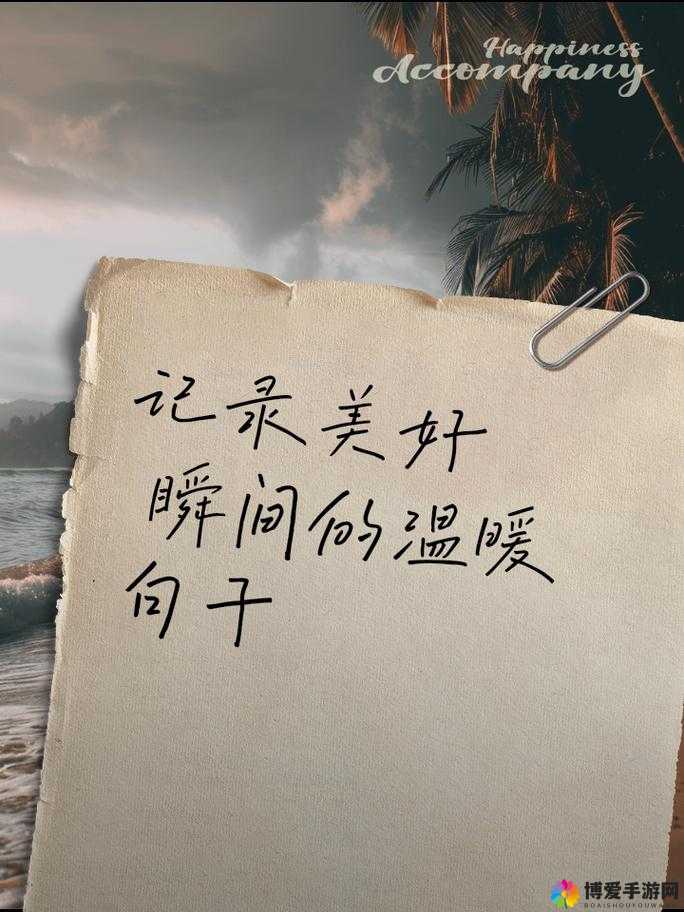 Happiness
Accompany
记录美好
瞬间的温暖
句子
博爱手游网
BOAISHOUYOUWANG